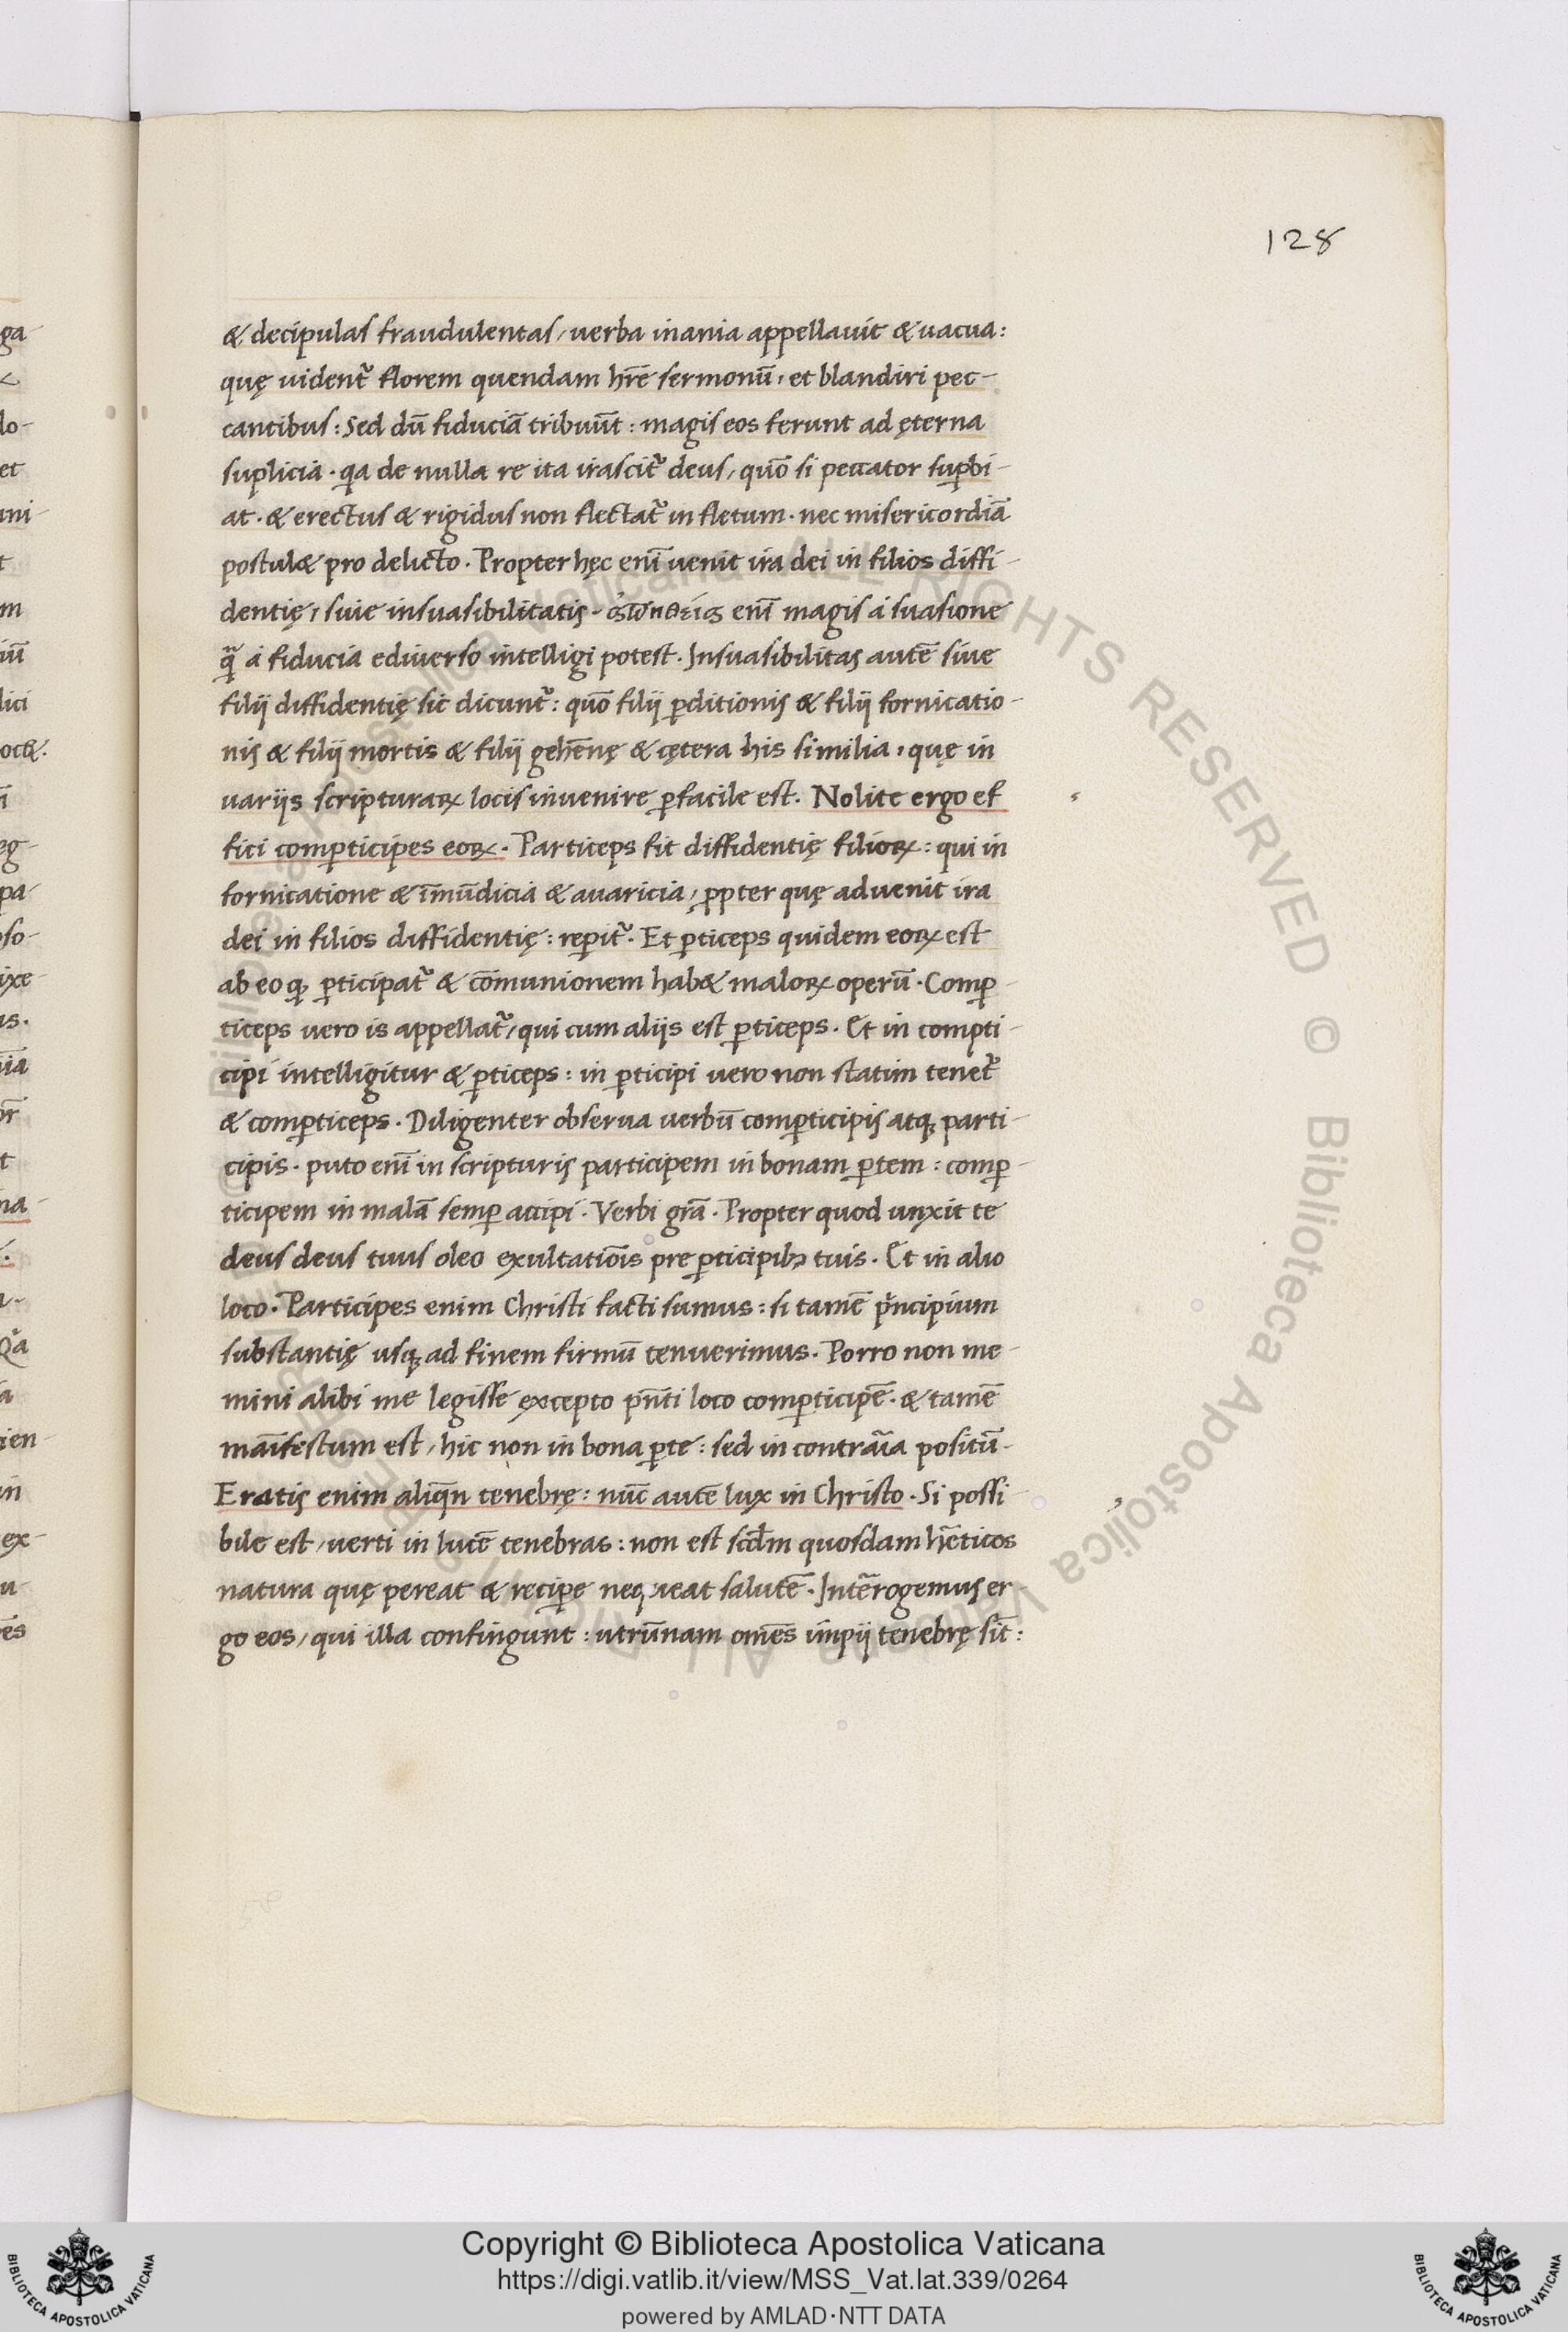 128
& decipulas fraudulentas, verba inania appellauit & uacua:
quę uident᷑ florem quendam hr̄e sermonū, et blandiri pec-
cantibus: Sed dū fiduciā tribuūt: magis eos ferunt ad ęterna
suplicia. qa de nulla re ita irascit᷑ deus, quō si peccator suꝑbi-
at. & erectus & rigidus non flectat᷑ in fletum. nec misericordiā
postul& pro delicto. Propter hęc enī uenit ira dei in filios diffi-
dentię, siue insuasibilitatis. enī magis á suasione
qᷓ á fiducia ediuerso intelligi potest. Insuasibilitas autē siue
filij diffidentię sic dicunt᷑: quō filij ꝑditionis & filij fornicatio-
nis & filij mortis & filij gehēnę & cętera his similia, quę in
uarijs scripturaꝝ locis inuenire ꝑfacile est. Nolite ergo ef
fici comꝑticipes eoꝝ. Particeps fit diffidentię filioꝝ: qui in
fornicatione & īmūdicia & auaricia, ꝓpter quę aduenit ira
dei in filios diffidentię: reꝑit᷑. Et ꝑticeps quidem eoꝝ est
ab eo qꝫ ꝑticipat᷑ & cōmunionem hab& maloꝝ operū. Comꝑ-
ticeps uero is appellat᷑, qui cum alijs est ꝑticeps. Et in compti-
cipi intelligitur & ꝑticeps: in ꝑticipi uero non statim tenet᷑
& comꝑticeps. Diligenter obserua uerbū comꝑticipis atqꝫ parti-
cipis. puto enī in scripturis participem in bonam ꝑtem: comꝑ-
ticipem in malā semꝑ accipi. Verbi grā. Propter quod unxit te
deus deus tuus oleo exultatiōis pre ꝑticipibꝫ tuis. Et in alio
loco. Participes enim Christi facti sumus: si tamē pͥncipium
substantię usqꝫ ad finem firmū tenuerimus. Porro non me-
mini alibi me legisse excepto pn̄ti loco comꝑticipē. & tamē
māifestum est, hic non in bona ꝑte: sed in contrāia positū.
Eratis enim aliqn̄ tenebrę: nūc autē lux in Christo. Si possi-
bile est, uerti in lucē tenebras: non est scd̄m quosdam hēticos
natura quę pereat & reciꝑe nequeat salutē. Intērogemus er
go eos, qui illa confingunt: utrūnam om̄es impij tenebrę sīt:
Copyright © Biblioteca Apostolica Vaticana
https://digi.vatlib.it/view/MSS_Vat.lat.339/0264
powered by AMLAD·NTT DATA